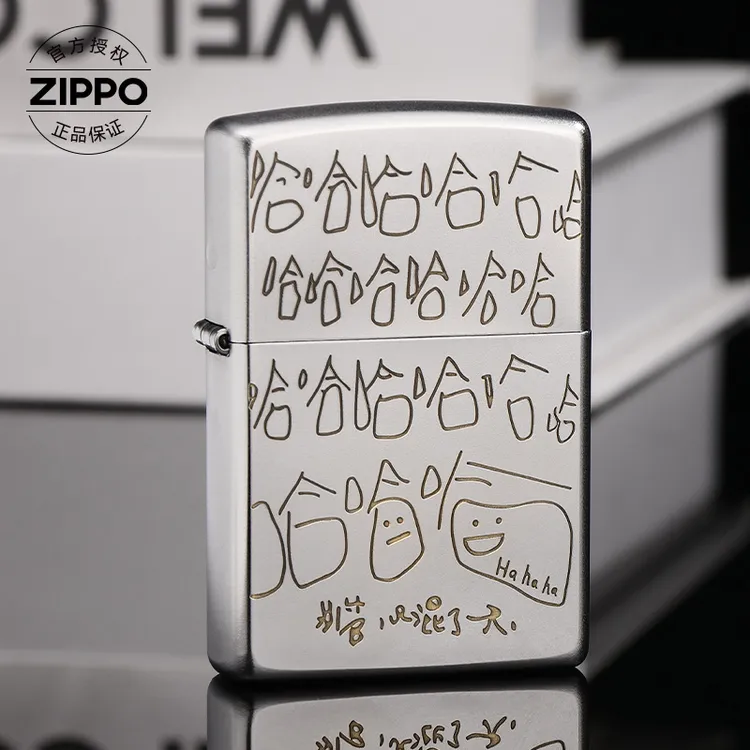 官方授权
ZIPPO
正品保证
哈哈哈哈哈哈
哈哈哈哈哈哈
哈哈哈哈哈哈
哈哈哈
Ha ha ha
混了一天